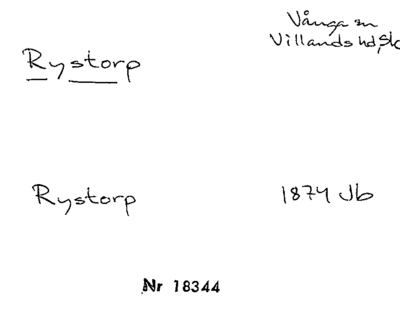 Vånga sn
Villands hd, Sk
Rystorp
Rystorp 1874 Jb
Nr 18344